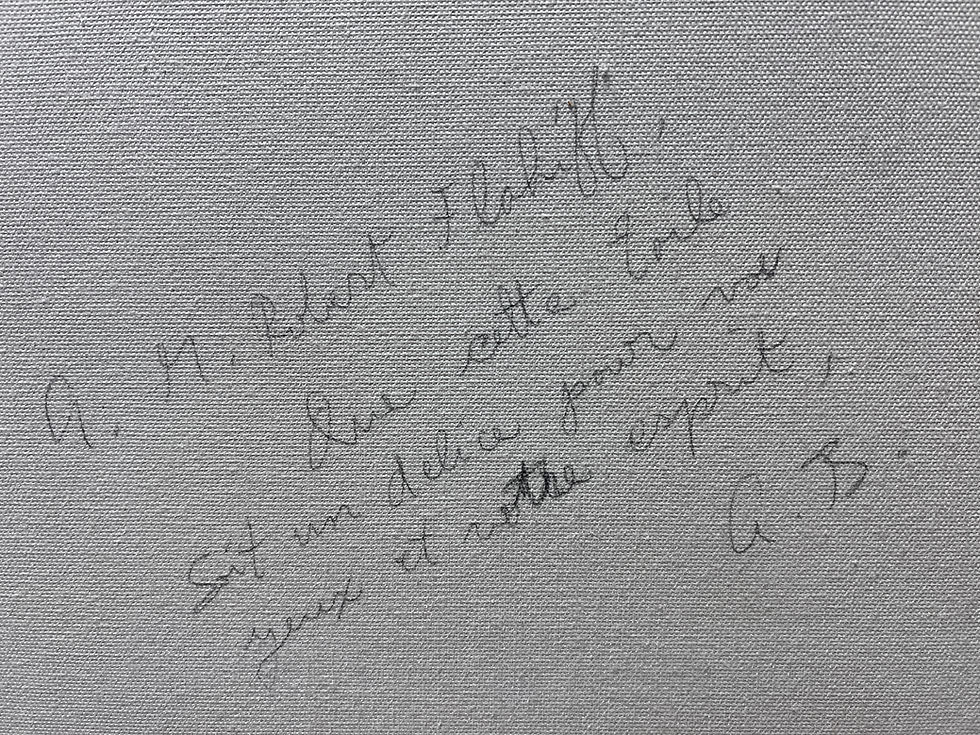 A. M. Robert Flahiff,
Que cette toile
Soit un delice pour vos
yeux et votre esprit,
A. B.